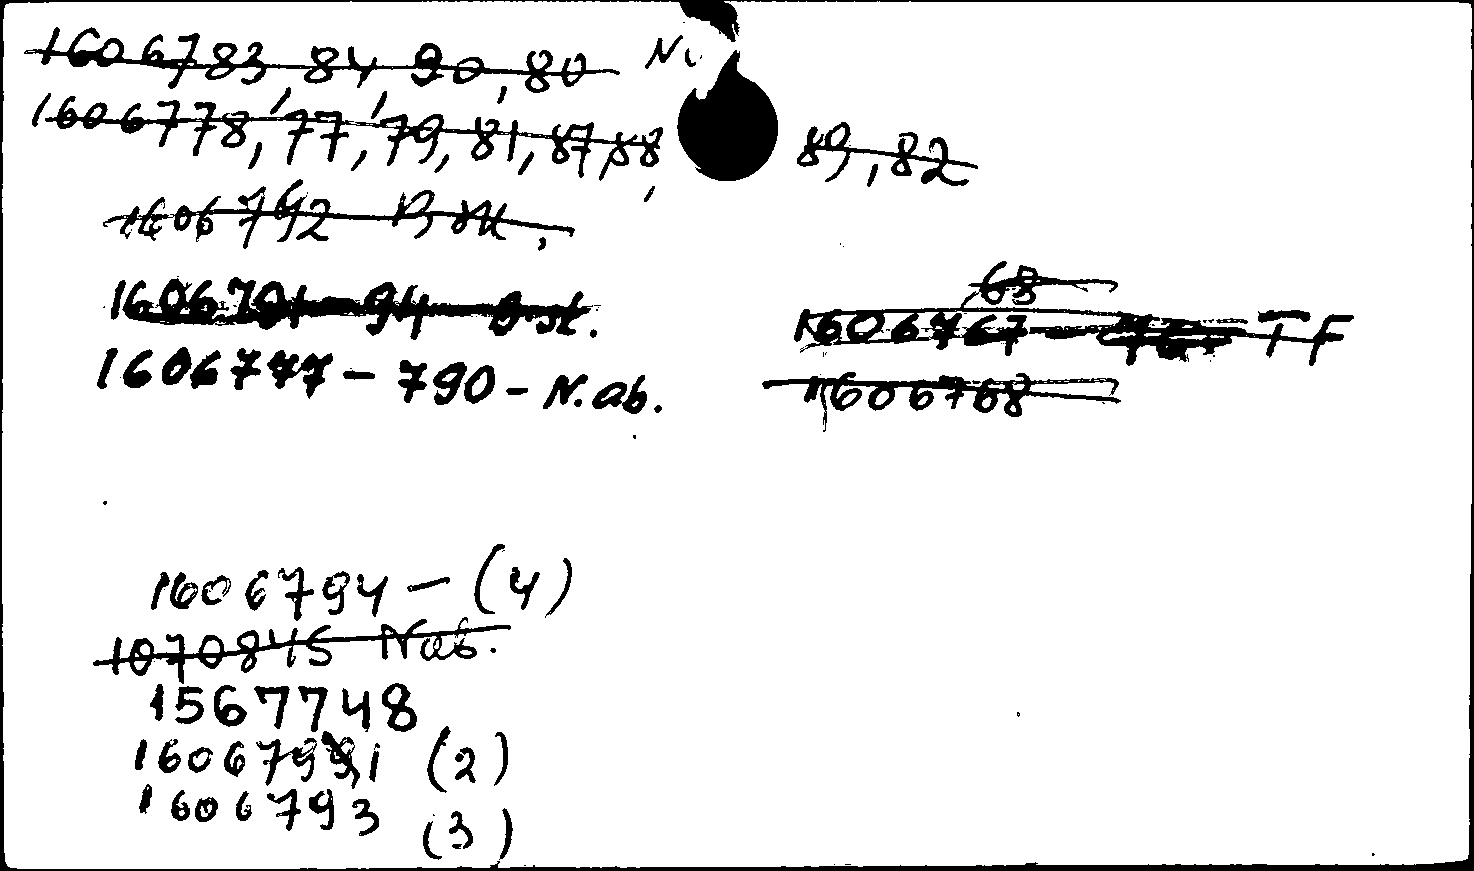 1606783, 84, 90, 80
1606778, 77, 79, 81, 87, 88, 89, 82
1606792
1606791 - 94 B.st.
1606777 - 790 - N.ab.
, 68
1606767 - TF
1606768
1606794 - (4)
1070845 Nab.
1567748
1606791 (2)
1606793 (3)